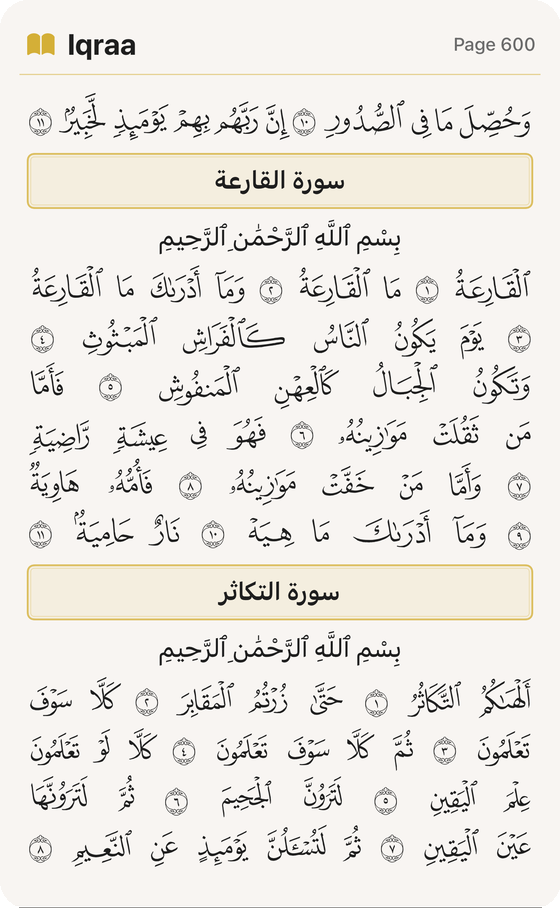 Iqraa
Page 600
وَحُصِّلَ مَا فِى ٱلصُّدُورِ ١٠ إِنَّ رَبَّهُم بِهِمْ يَوْمَئِذٍ لَّخَبِيرٌۢ ١١
سورة القارعة
بِسْمِ ٱللَّهِ ٱلرَّحْمَٰنِ ٱلرَّحِيمِ
ٱلْقَارِعَةُ ١ مَا ٱلْقَارِعَةُ ٢ وَمَآ أَدْرَىٰكَ مَا ٱلْقَارِعَةُ
٣ يَوْمَ يَكُونُ ٱلنَّاسُ كَٱلْفَرَاشِ ٱلْمَبْثُوثِ ٤
وَتَكُونُ ٱلْجِبَالُ كَٱلْعِهْنِ ٱلْمَنفُوشِ ٥ فَأَمَّا
مَن ثَقُلَتْ مَوَٰزِينُهُۥ ٦ فَهُوَ فِى عِيشَةٍ رَّاضِيَةٍ
٧ وَأَمَّا مَنْ خَفَّتْ مَوَٰزِينُهُۥ ٨ فَأُمُّهُۥ هَاوِيَةٌ
٩ وَمَآ أَدْرَىٰكَ مَا هِيَهْ ١٠ نَارٌ حَامِيَةٌۢ ١١
سورة التكاثر
بِسْمِ ٱللَّهِ ٱلرَّحْمَٰنِ ٱلرَّحِيمِ
أَلْهَىٰكُمُ ٱلتَّكَاثُرُ ١ حَتَّىٰ زُرْتُمُ ٱلْمَقَابِرَ ٢ كَلَّا سَوْفَ
تَعْلَمُونَ ٣ ثُمَّ كَلَّا سَوْفَ تَعْلَمُونَ ٤ كَلَّا لَوْ تَعْلَمُونَ
عِلْمَ ٱلْيَقِينِ ٥ لَتَرَوُنَّ ٱلْجَحِيمَ ٦ ثُمَّ لَتَرَوُنَّهَا
عَيْنَ ٱلْيَقِينِ ٧ ثُمَّ لَتُسْـَٔلُنَّ يَوْمَئِذٍ عَنِ ٱلنَّعِيمِ ٨